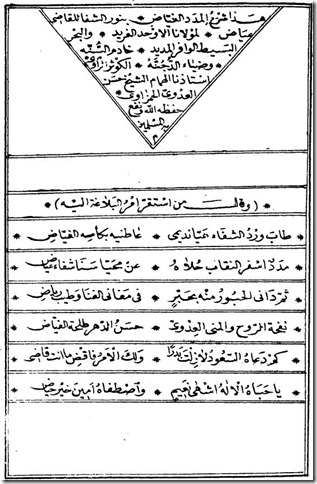 هذا شرح المدد الفياض * بنور الشفا للقاضي
عياض * لمولانا الأوحد الفريد * والبحر
البسيط الوافر المديد * خادم السنه
* وضياء الدجنه * الكوثر الراوي
استاذنا الهمام الشيخ حسن
العدوي الحمزاوي
حفظه الله ونفع به
المسلمين
م
* (وقال من استقر امر البلاغة اليه) *
* طاب ورد الشفاء عياندي * عاطنيه بكاسه الفياض *
* مدد اسفر النقاب حلاه * عن محيا سنا شفاء عياض *
* ثم داني الحبور منه بحبر * في معاني الفتا وطيب رياض *
* نفحة الروح والمنى العدوي * حسن الدهر طلحة الفياض *
* كم دعاه السعود لازلت بدرا * ولك الامر فاقض ما انت قاضي *
* يا حباه الاله اشفى نعيم * واصطفاه امين خير حياض *